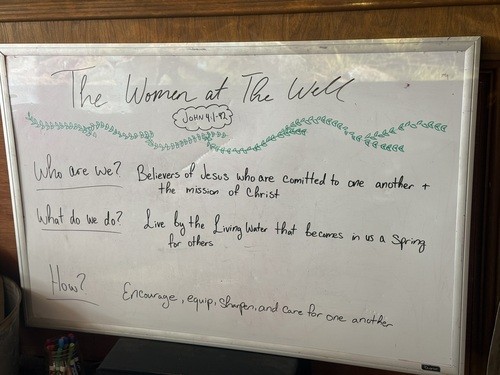 The Women at The Well
JOHN 4:1-42
Who are we? Believers of Jesus who are comitted to one another +
the mission of Christ
What do we do? Live by the Living Water that becomes in us a Spring
for others
How?
Encourage, equip, sharpen, and care for one another